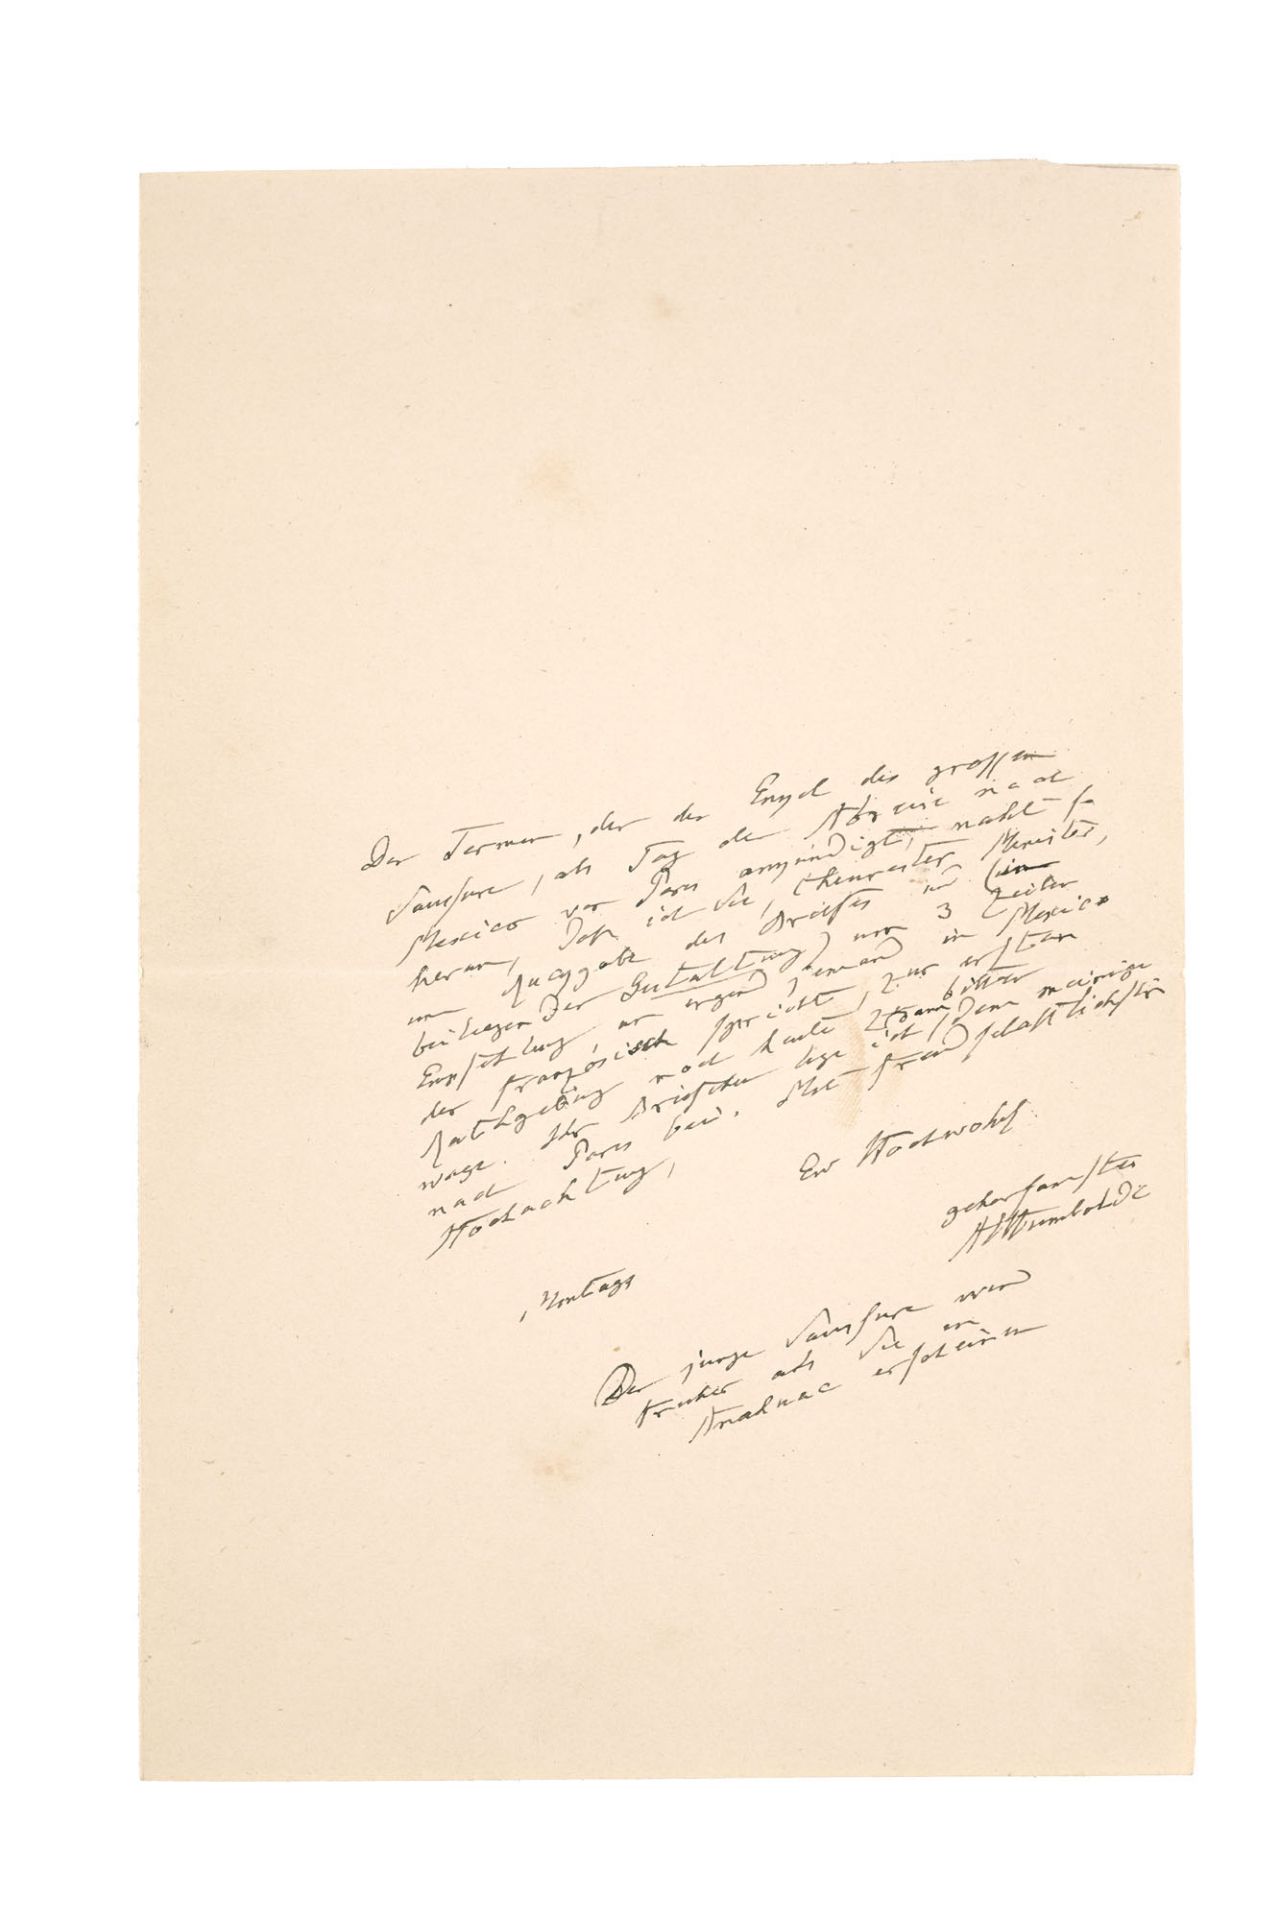 Der Termin, der der Enkel des grossen
Saussure, als Tag der Abreise nach
Mexico vor Paris angekündigt, naht so
heran, Dass ich Sie, theurester Minister,
um Rückgabe des Briefes und (in
beiliegender Gestaltung) um 3 Zeilen
Empfehlung, an irgend jemand in Mexico
der französisch spricht, zur ersten
Rathgebung noch heute zu bitten
wage. Ihr Briefchen lege ich dann dem meinigen
nach Paris bei. Mit freundschaftlichster
Hochachtung,
Ew Hochwohlg
gehorsamster
AvHumboldt
Montags
Der junge Saussure wird
früher als Sie in
Anahuac erscheinen